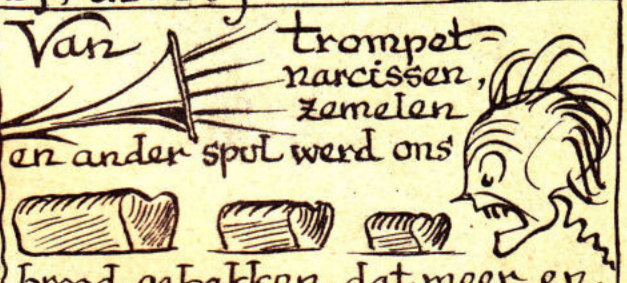 Van trompet-
narcissen,
zemelen
en ander spul werd ons
brood gebakken, dat meer en